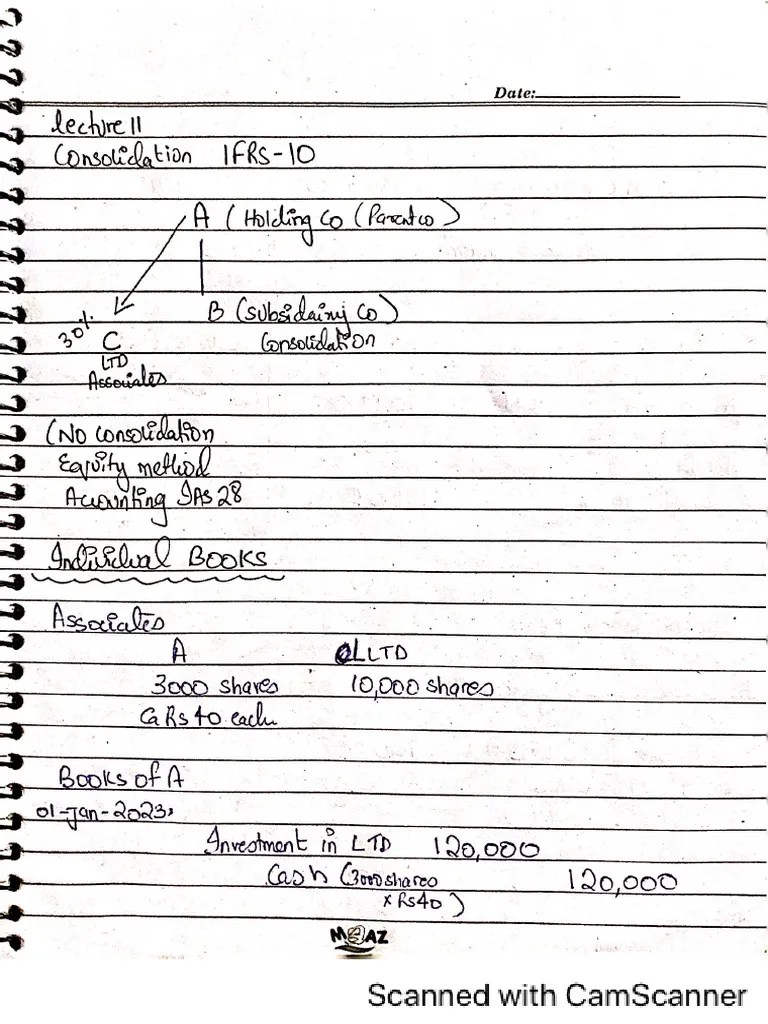 Date:
lecture 11
Consolidation IFRS-10
A (Holding Co (Parent co)
B (Subsidainy Co)
30%
C
Consolidation
LTD
Associates
(No consolidation
Equity method
Accounting IAS 28
Individual BOOKS
Associates
A LTD
3000 shares 10,000 shares
@ Rs 40 each
Books of A
01-Jan-2023,
Investment in LTD 120,000
Cash (3000 shares 120,000
x Rs 40)
MAAZ
Scanned with CamScanner